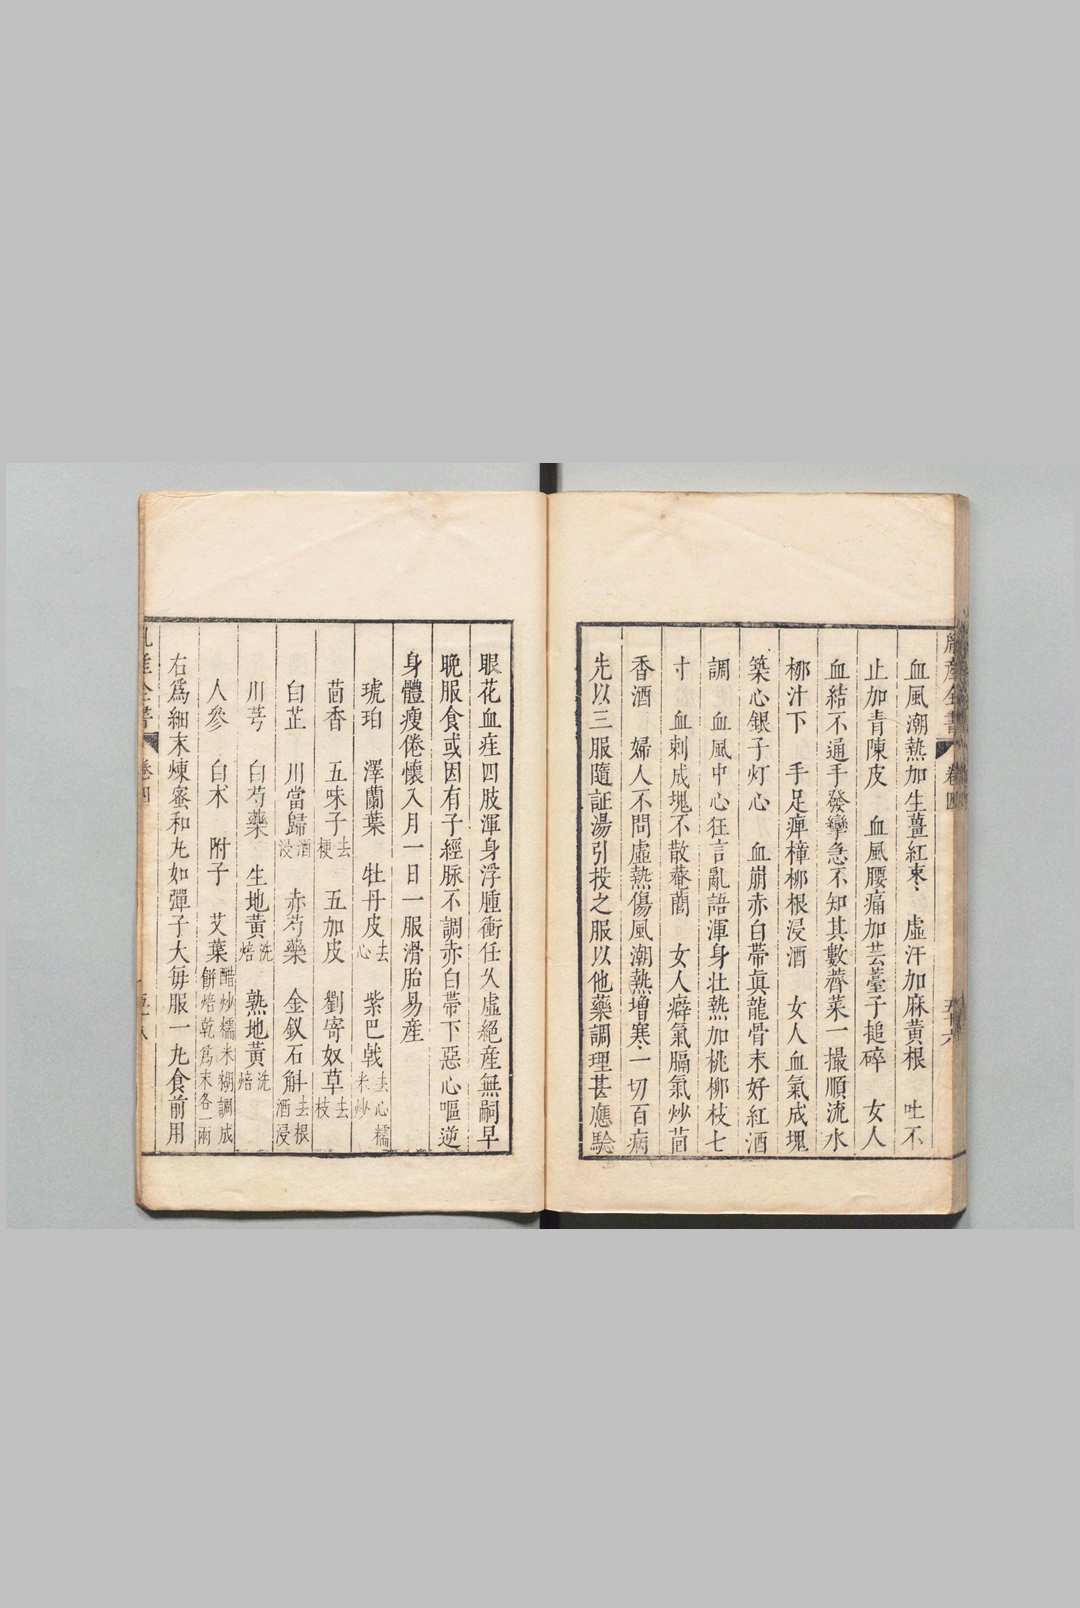 血風潮熱加生薑紅棗 虛汗加麻黃根 吐不
止加青陳皮 血風腰痛加芸薹子搥碎 女人
血結不通手發攣急不知其數薺菜一撮順流水
栁汁下 手足痺樟栁根浸酒 女人血氣成塊
築心銀子灯心 血崩赤白帶眞龍骨末好紅酒
調 血風中心狂言亂語渾身壯熱加桃栁枝七
寸 血刺成塊不散菴䕡 女人癖氣膈氣炒茴
香酒 婦人不問虛熱傷風潮熱增寒一切百病
先以三服隨証湯引投之服以他藥調理甚應驗
眼花血疰四肢渾身浮腫衝任久虛絕産無嗣早
晚服食或因有子經脉不調赤白帶下惡心嘔逆
身體瘦倦懷入月一日一服滑胎易産
琥珀 澤蘭葉 牡丹皮去心 紫巴戟去心糯米炒
茴香 五味子去梗 五加皮 劉寄奴草去枝
白芷 川當歸酒浸 赤芍藥 金釵石斛去根酒浸
川芎 白芍藥 生地黃洗焙 熟地黃洗焙
人參 白术 附子 艾葉醋炒糯米糊調成餅焙乾爲末各一兩
右爲細末煉蜜和丸如彈子大每服一丸食前用
卷四